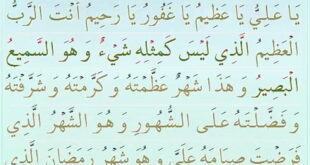 يَا عَلِيُّ يَا عَظِيمُ يَا غَفُورُ يَا رَحِيمُ اَنْتَ الرَّبُّ
الْعَظِيمُ الَّذِي لَيْسَ كَمِثْلِهِ شَيْءٌ وَ هُوَ السَّمِيعُ
الْبَصِيرُ وَ هَذَا شَهْرٌ عَظَّمْتَهُ وَ كَرَّمْتَهُ وَ شَرَّفْتَهُ
وَ فَضَّلْتَهُ عَلَى الشُّهُورِ وَ هُوَ الشَّهْرُ الَّذِي
فَرَضْتَ صِيَامَهُ عَلَيَّ وَ هُوَ شَهْرُ رَمَضَانَ الَّذِي